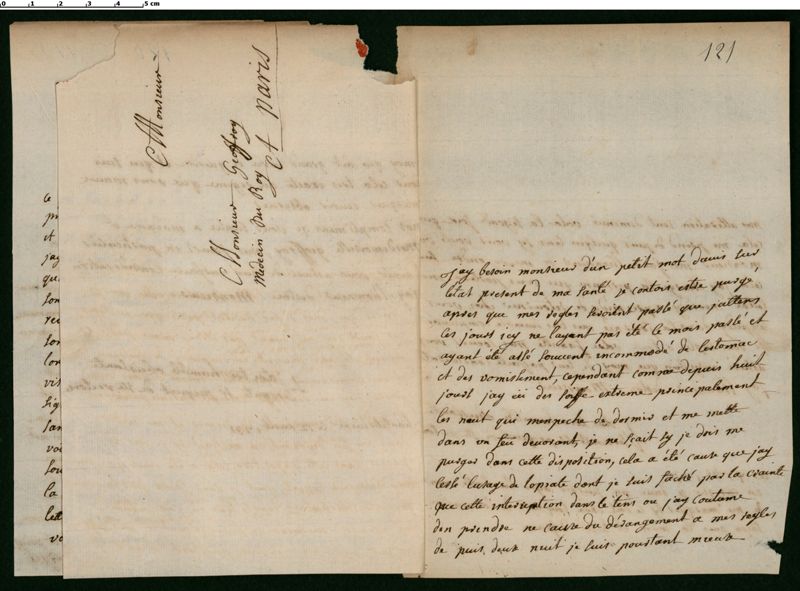 0 1 2 3 4 5 cm
Monsieur
Monsieur Geoffroy
Medecin Du Roy
A Paris
ce
et
jay
qu
la
vo
121
Jay besoin monsieur d'un petit mot davis sur
letat present de ma santé je contois estre purgé
apres que mes regles seroient passé que jattens
ces jours icy ne layant pas été le mois passé et
ayant été assé souvent incommodé de lestomac
et des vomissement, cependant comme depuis huit
jours jay eü des soiffe extreme principalement
les nuit qui menpeche de dormir et me mette
dans un feu devorant, je ne sçait sy je dois me
purger dans cette disposition, cela a été cause que jay
cessé lusage de lopiate dont je suis faché par la crainte
que cette interuption dans le tems ou jay coutume
den prendre ne cause du désrangement a mes regles
de puis deux nuit je suis pourtant mieux